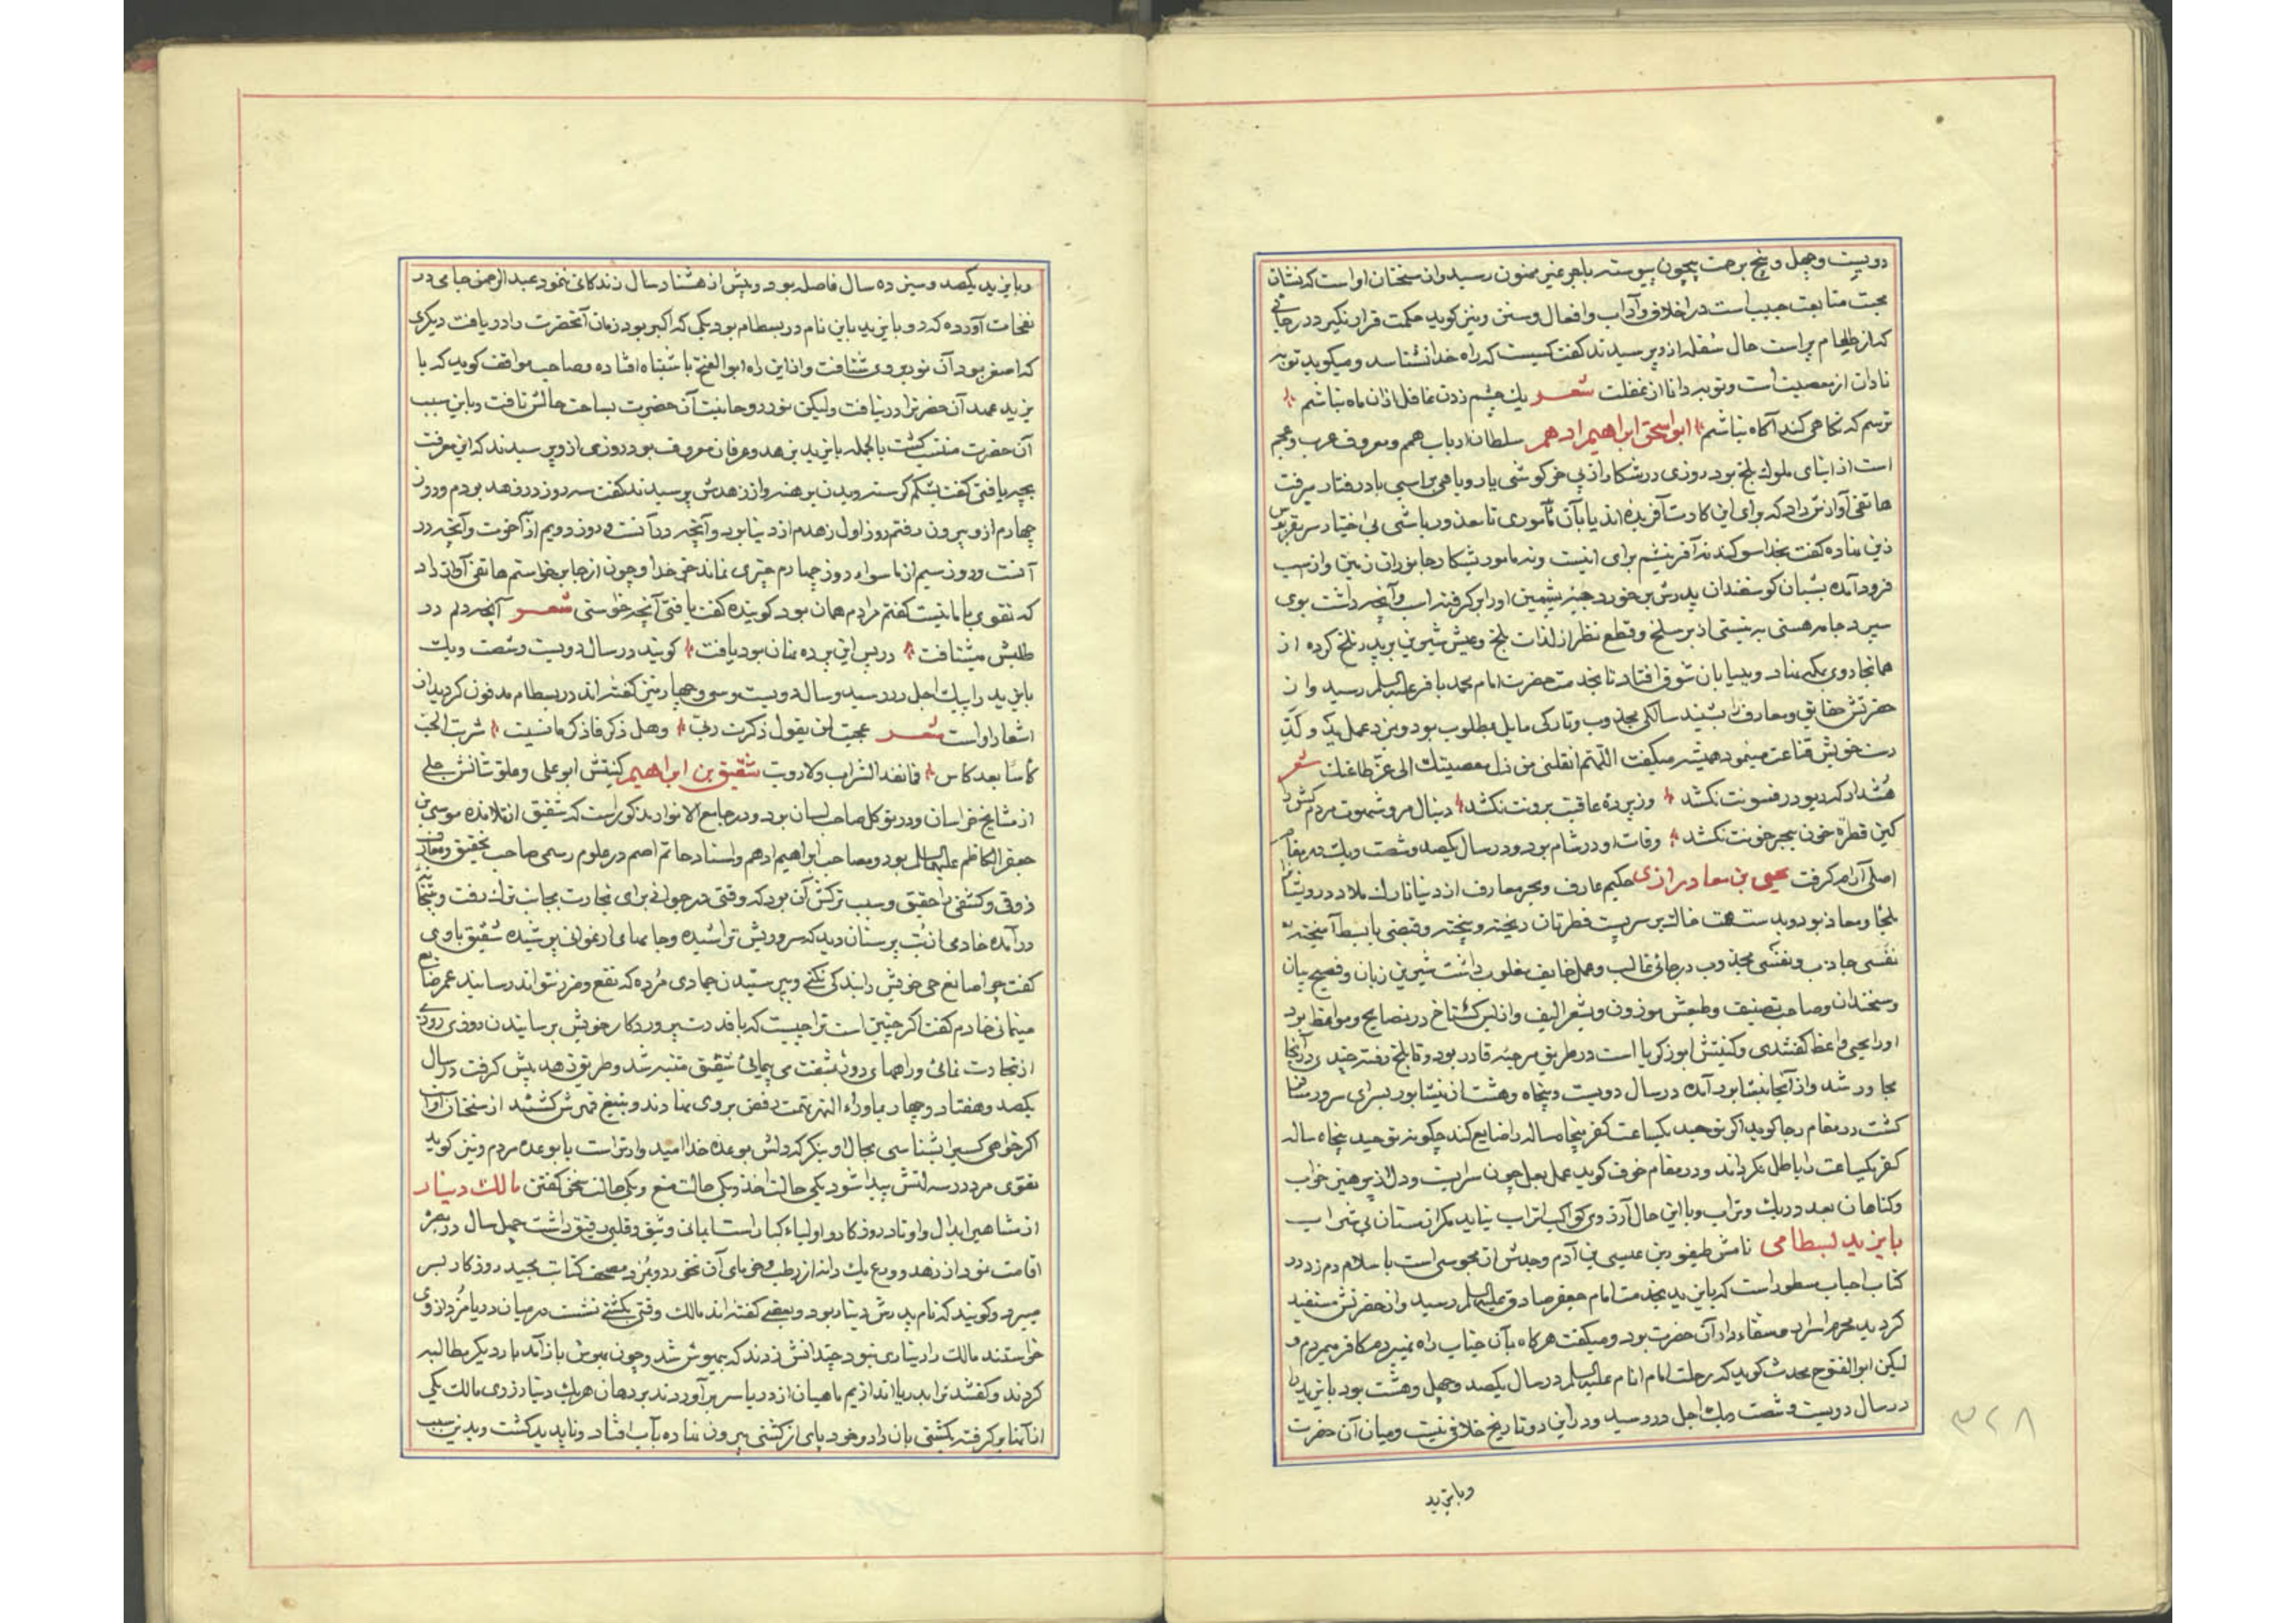 دویست و چهل و پنج برحمت بیچون پیوسته باجر غیر ممنون رسید و از سخنان او است که نشان
محبت متابعت حبیب است در اخلاق و آداب و افعال و سنن و نیز کوید حکمت قرار نکیرد در
که از طعام پر است حال سفله از وی پرسیدند کفت کسیست که راه خدا نشناسد و میکوید توبه
نادان از معصیت است و توبه دانا از غفلت شعـر یك چشم زدن غافل از ان ماه نباشم
ترسم که نکاهی کند آکاه نباشم ابو اسحق ابراهیم ادهم سلطان ارباب همم و معروف عرب و عجم
است از ابنای ملوك بلخ بود روزی در شکار از پی خرکوشی یا روباهی بر اسبی بادرفتار میرفت
هاتفی آواز داد که برای این کارت آفریده اند یا بآن مأموری تا معذور باشی بی اختیار سر
زین نهاده کفت بخدا سوکند نه آفرینشم برای اینست و نه مامور بشکار جانوران زمین و از اسب
فرود آمده بشبان کوسفندان پدرش بر خورد جبه پشمین او را بر کرفته اسب و آنچه داشت بوی
سپرد جامه هستی به نیستی از بر سلخ و قطع نظر از لذات بلخ و عیش شیرین بر پدر تلخ کرده از
همانجا روی بکه نهاد و ببیابان شوق افتاد تا بخدمت حضرت امام محمد باقر علیه السلم رسید و از
حضرتش حقایق و معارف را بشنید سالکی مجذوب و تارکی مایل مطلوب بود و بمزد عمل ید و کدّ
دست خویش قناعت مینمود همیشه میکفت اللّهم انقلنی من ذل معصیتك الی عزّ طاعتك شعر
هُشدار که دیو در فسونت نکشد وز پرده عاقبت برونت نکشد دنبال مرو شهوت مردم کش را
کین قطره خون ببحر خونت نکشد وفات او در شام بود و در سال یکصد و شصت و یك در مقام
اصلی آرام کرفت یحیی بن معاد رازی حکیم عارف و بحر معارف از دنیا تارك ملاد درویشان
ملجا و معاذ بود و بدست همت خاك بر سر پست فطرتان ریخته و پیخته و قبضی با بسط آمیخته
نفسی جاذب و نفسی مجذوب در جائی غالب و عمل خایف مغلوب داشت شیرین زبان و فصیح بیان
و سخندان و صاحب تصنیف و طبعش موزون و بشعر الیف و از بس کستاخ در نصایح و مواعظ بود
او را یحیی واعظ کفتندی و کنیتش ابو زکریا است در طریق مرجئه قادر بود و تا بلخ رفته چندی در آنجا
مجاور شد و از آنجا بنیشابور آمده در سال دویست و پنجاه و هشت از نیشابور بسرای سرور
کشت در مقام رجا کوید اکر توحید یکساعت کفر پنجاه ساله را ضایع کند چکونه توحید پنجاه ساله
کفر یکساعت را باطل نکرداند و در مقام خوف کوید عمل بعمل چون سرابیت و دل
و کناهان بعدد ریك و تراب و با این حال آرزوی کواکب اتراب نیاید مکر از مستان بی شراب
بایزید بسطامی نامش طیفور بن عیسی بن آدم و جدش از مجوسی است با سلام دم زد در
کتاب احباب مسطور است که بایزید بخدمت امام جعفر صادق علیه السلم رسید و از حضرتش مستفید
کردید محرم اسرار و سقاء دار آن حضرت بود و میکفت هرکاه بآن جناب راه نمیبردم کافر میمردم و
لیکن ابو الفتوح محدث کوید که رحلت امام انام علیه السلم در سال یکصد و چهل و هشت بود بایزید را
در سال دویست و شصت و یك اجل در رسید و در این دو تاریخ خلاقی نیست و میان آن حضرت
و بایزید
۳۲۸
و بایزید یکصد و سیزده سال فاصله بود و بیش از هشتاد سال زندکانی ننمود عبد الرحمن جامی در
نفحات آورده که دو بایزید باین نام در بسطام بود یکی که اکبر بود زمان آنحضرت را دریافت دیکری
که اصغر بود آن نور بر وی نتافت و از این راه ابو الفتح باشتباه افتاده و صاحب مواقف کوید که با
یزید عهد آن حضرترا در نیافت ولیکن نور روحانیت آن حضرت بساحت حالش تافت و باین سبب
آن حضرت منتسب کشت بالجمله بایزید بزهد و عرفان معروف بود روزی از وی پرسیدند که این معرفت
بچه یافتی کفت بشکم کرسنه و بدن برهنه و از زهدش پرسیدند کفت سه روز در زهد بودم و روز
چهارم از و بیرون رفتم روز اول زهدم از دنیا بود و آنچه در آنست و روز دویم از آخرت و آنچه در
آنست و روز سیم از ما سوا و روز چهارم چیزی نماند جز خدا و چون از جا بر خواستم هاتفی آواز داد
که تقوی با ما نیست کفتم مرادم همان بود کوینده کفت یافتی آنچه خواستی شعـر آنچه دلم در
طلبش میشتافت در پس این پرده نهان بود یافت کویند در سال دویست و شصت و یك
بایزید را پیك اجل در رسید و سال دویست و سی و چهار نیز کفته اند در بسطام مدفون کردید از
اشعار او است شعـر عجبت لمن یقول ذکرت ربی وهل ذکر فاذکر ما نسیت شربت الحبّ
کأسا بعد کاس فما نفد الشراب ولا رویت شقیق بن ابراهیم کنیتش ابو علی و علو شانش جلی
از مشایخ خراسان و در توکل صاحب لسان بود و در جامع الانوار مذکور است که شقیق از تلامذه موسی بن
جعفر الکاظم علیهما السلم بود و مصاحب ابراهیم ادهم و استاد حاتم اصم در علوم رسمی صاحب تحقیق و معارف
ذوقی و کشفی را حقیق و سبب ترکش آن بود که وقتی در جوانی برای تجارت بجانب ترك رفت و
در آمده خادمی از بُت پرستان دید که سر و ریش تراشیده و جامهای ارغوانی پوشیده شقیق با وی
کفت چرا صانع حی خویش را بندکی نکنی و بپرستیدن جمادی مُرده که نفع و ضر نتواند رسانید عمر ضایع
مینمائی خادم کفت اکر چنین است ترا چیست که با قدرت پروردکار خویش برسانیدن روزی روی
از تجارت نمائی و راههای دور بشفت می پیمائی شقیق متنبه شد و طریق زهد پیش کرفت در سال
یکصد و هفتاد و چهار بماوراء النهر تهمت رفض بر وی نهادند و بتیغ قهرش کشتند از سخنان او است
اکر خواهی کسیرا بشناسی بمجال او بنکر که دلش بوعده خدا امیدوارتر است یا بوعده مردم و نیز کوید
تقوی مرد در سه لتش پیدا شود یکی حالت اخذ و یکی حالت منع و یکی حالت سخن کفتن مالك دینار
از مشاهیر ابدال و اوتاد روزکار و اولیاء کبار است ایمانی وثیق و قلبی رقیق داشت چهل سال در بصره
اقامت نمود از زهد و ورع یك دانه از رطب و خرمای آن نخورد و بمزد مصحف کتابت مجید روزکار بسر
میبرد و کویند که نام پدرش دینار بود و بعضی کفته اند مالك وقتی بکشتی نشست در میان دریا مُزد از وی
خواستند مالك را دیناری نبود چندانش زدند که بیهوش شد و چون بهوش باز آمد بار دیکر مطالبه
کردند و کفتند ترا بدریا اندازیم ماهیان از دریا سر بر آوردند بر دهان هر یك دینار زری مالك یکی
از آنها بر کرفته بکشتی بان داد و خود پای از کشتی بیرون نهاده بآب افتاد و ناپدید کشت و بدین سبب